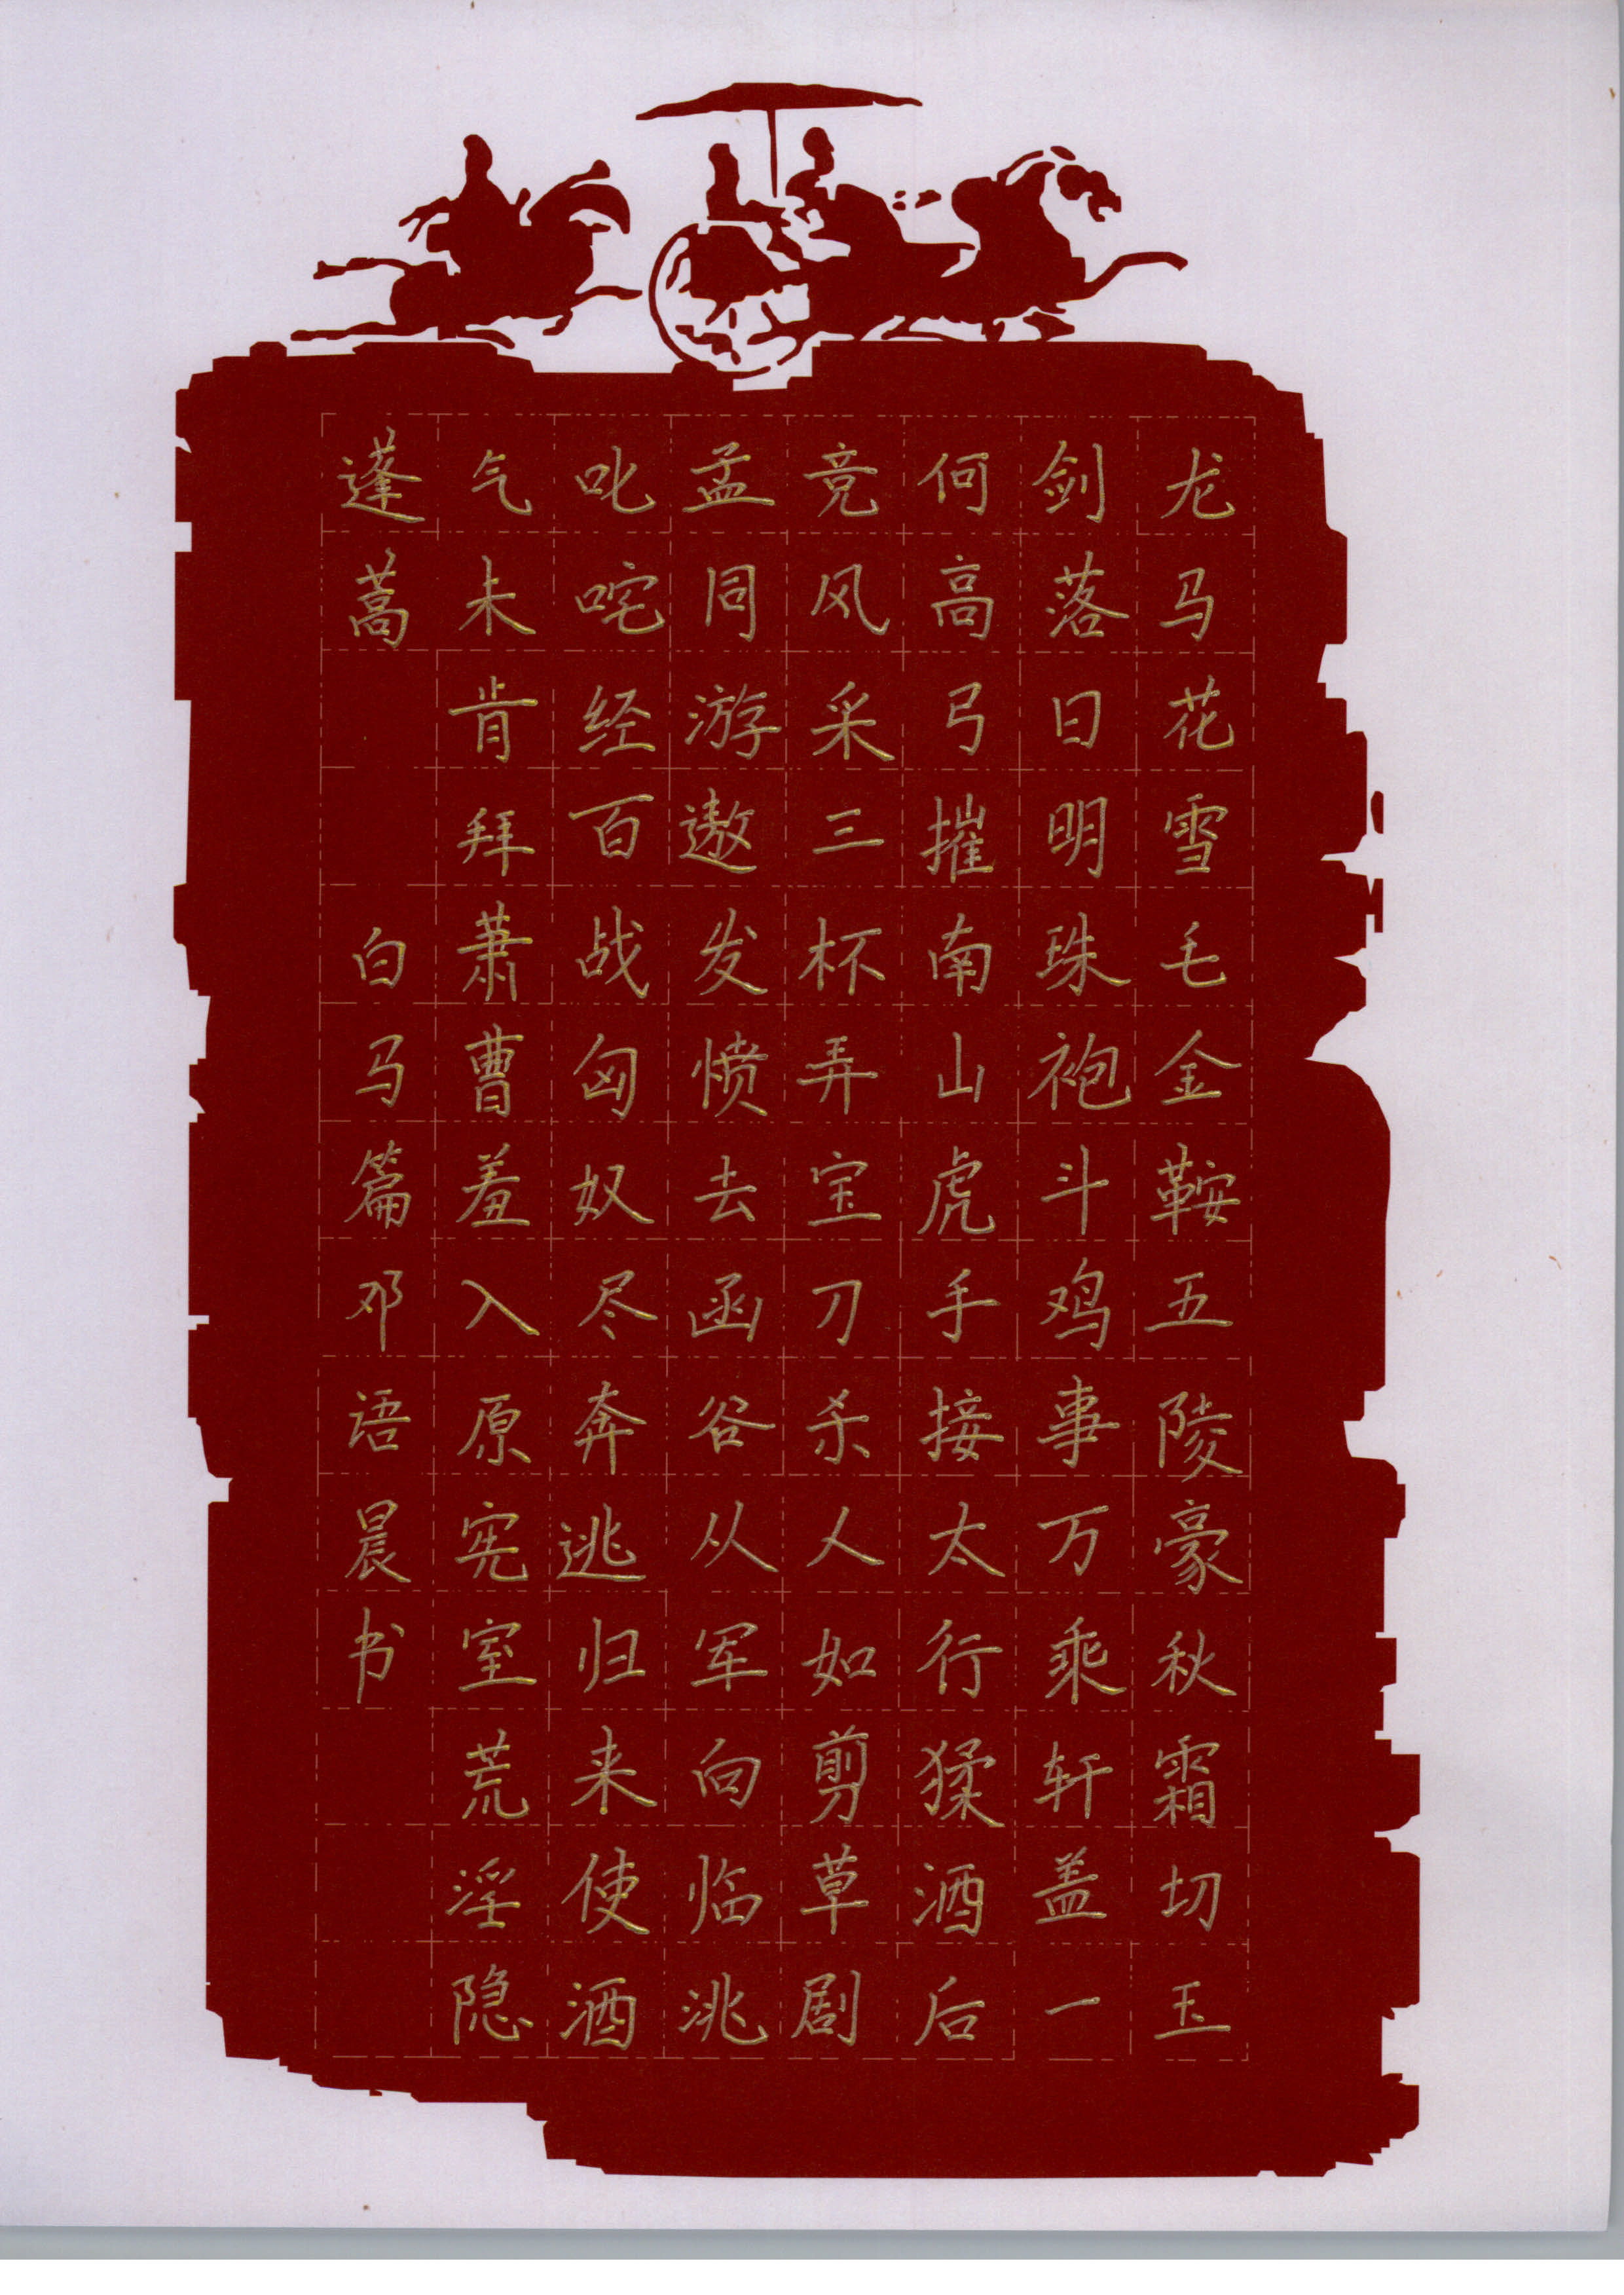 龙马花雪毛金鞍五陵豪秋霜切玉
剑落日明珠袍斗鸡事万乘轩盖一
何高弓摧南山虎手接太行猱酒后
竞风采三杯弄宝刀杀人如剪草剧
孟同游遨发愤去函谷从军向临洮
叱咤经百战匈奴尽奔逃归来使酒
气未肯拜萧曹羞入原宪室荒淫隐
蓬蒿
白马篇邓语晨书